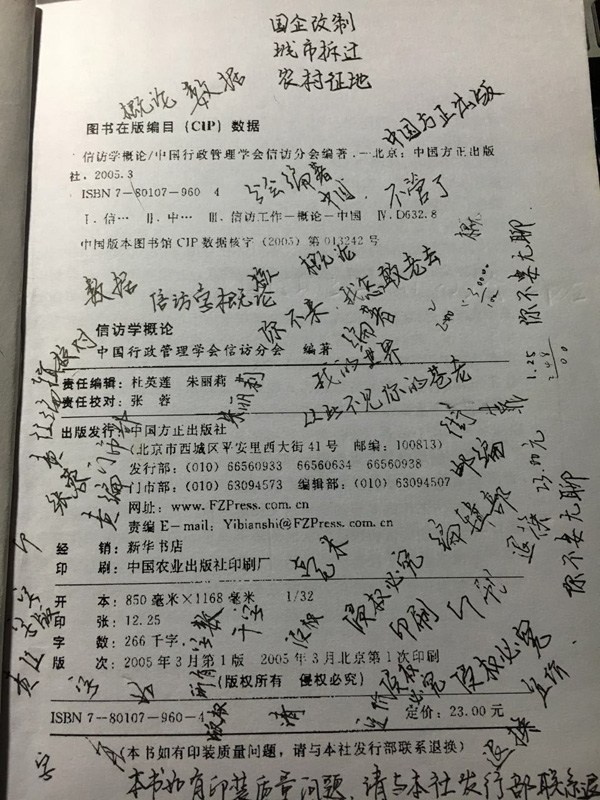 国企改制
城市拆迁
农村征地
概论 数据
中国方正出版
图书在版编目（CIP）数据
信访学概论/中国行政管理学会信访分会编著．—北京：中国方正出版
社，2005.3
ISBN 7—80107—960 4
编著
中国．不管了
Ⅰ．信… Ⅱ．中… Ⅲ．信访工作—概论—中国 Ⅳ．D632.8
中国版本图书馆 CIP 数据核字（2005）第 013242 号
数据 信访学概论
概论
你不来，我怎敢老去
你不要无聊
信访学概论
中国行政管理学会信访分会 编著
编著
我的世界
责任编辑：杜英莲 朱丽莉
责任校对：张 蓉
出版发行：中国方正出版社
（北京市西城区平安里西大街 41 号 邮编：100813）
发行部：（010）66560933 66560634 66560938
门市部：（010）63094573 编辑部：（010）63094507
网址：www.FZPress.com.cn
责编 E—mail：Yibianshi@FZPress.com.cn
邮编
编辑部
23.00元
你不要无聊
经 销：新华书店
印 刷：中国农业出版社印刷厂
开 本：850 毫米×1168 毫米 1/32
印 张：12.25
字 数：266 千字
版 次：2005 年 3 月第 1 版 2005 年 3 月北京第 1 次印刷
（版权所有 侵权必究）
侵权必究
印刷
侵权必究
侵权必究
定价
版权
请
ISBN 7—80107—960—4
定价：23.00 元
（本书如有印装质量问题，请与本社发行部联系退换）
本书如有印装质量问题，请与本社发行部联系退